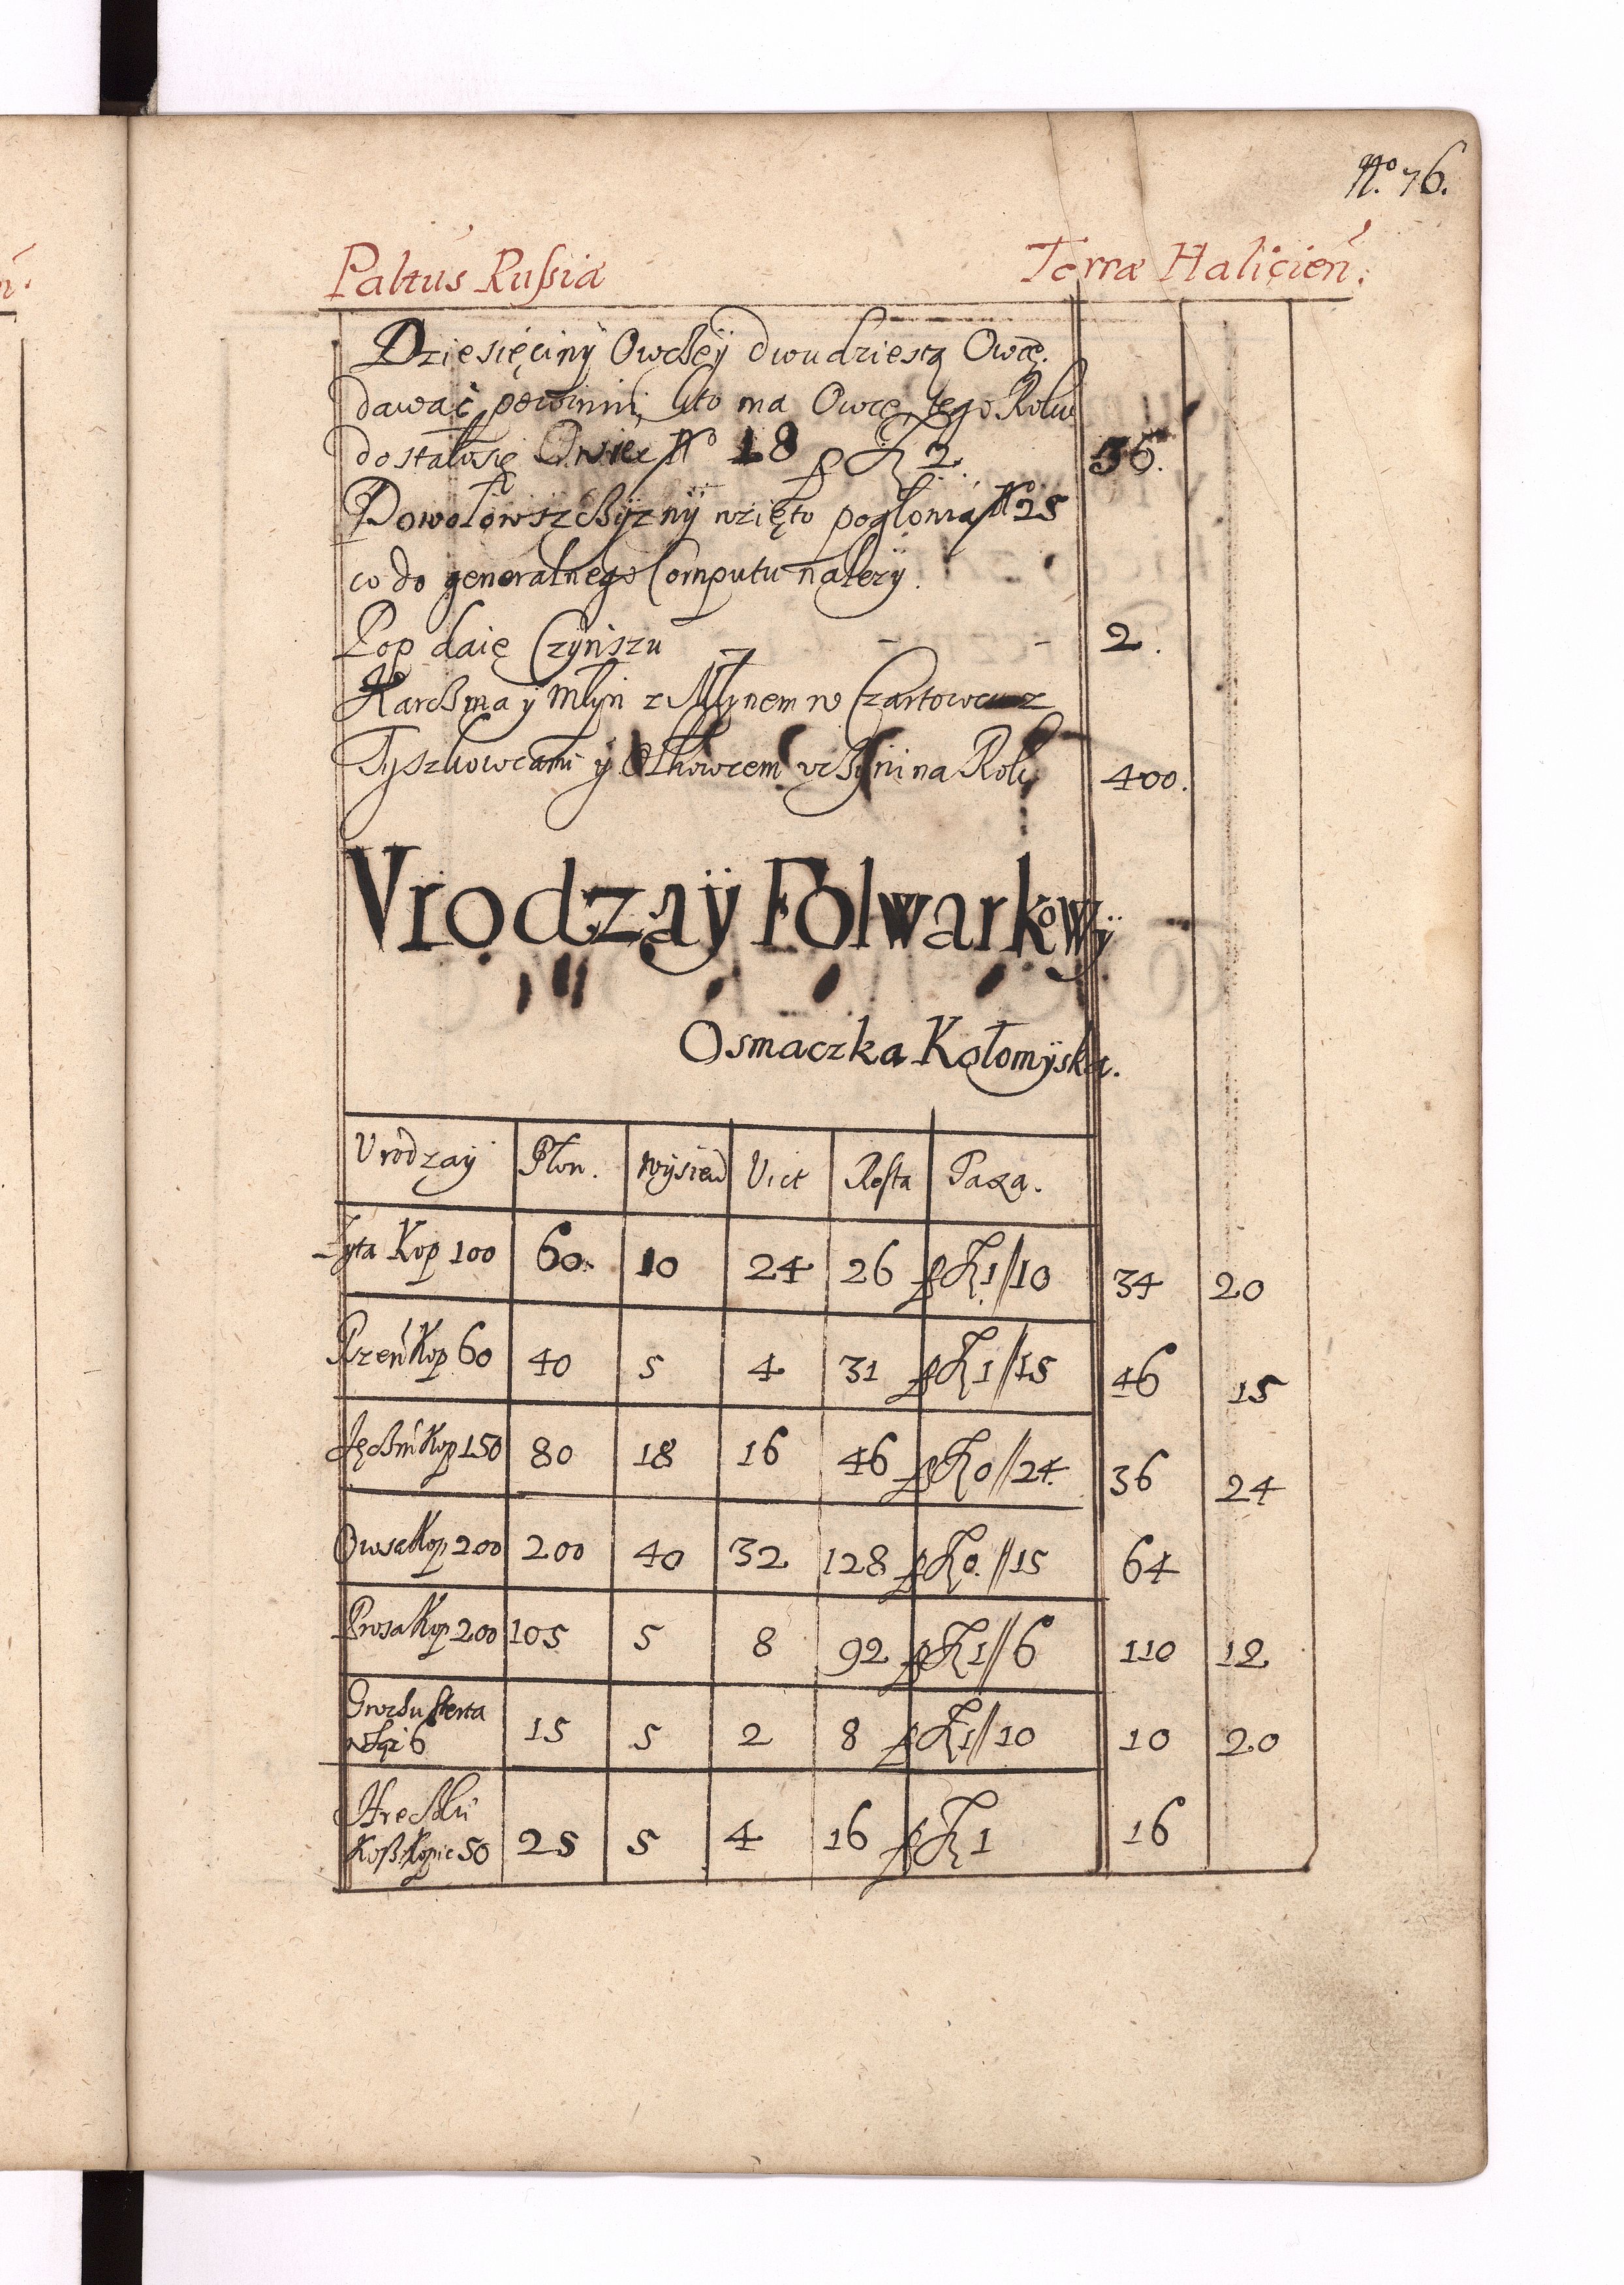 No. 76.
Paltus Russiæ Terræ Halicień:
Dziesięciny Owczey dwudziestą Owcę.
dawać powinni, kto ma Owce tego Roku
dostało się Owiec No 18 p zł 2. 36.
Powołowszczyzny wzięto pogłowia No 25
co do generalnego Computu należy.
Pop daię Czynszu - - 2.
Karczma y Młyn z Młynem w Czartowcu z
Tyszkowcami y Olhowcem vczyni na Rok 400.
Vrodzaÿ Folwarkowÿ
Osmaczka Kołomÿska.
Vrodzaÿ Płon. wysiew Vict Resta Taxa.
Zyta Kop 100 60. 10 24 26 p zł 1//10 34 20
Przeń Kop 60 40 5 4 31 p zł 1//15 46 15
Jęczm Kop 150 80 18 16 46 p zł 0//24. 36 24
Owsa Kop 200 200 40 32 128 p zł 0.//15 64
Prosa Kop 200 105 5 8 92 p zł 1//6 110 12
Grochu sterta 15 5 2 8 p zł 1//10 10 20
6
Hreczki
Kop 50 25 5 4 16 p zł 1 16